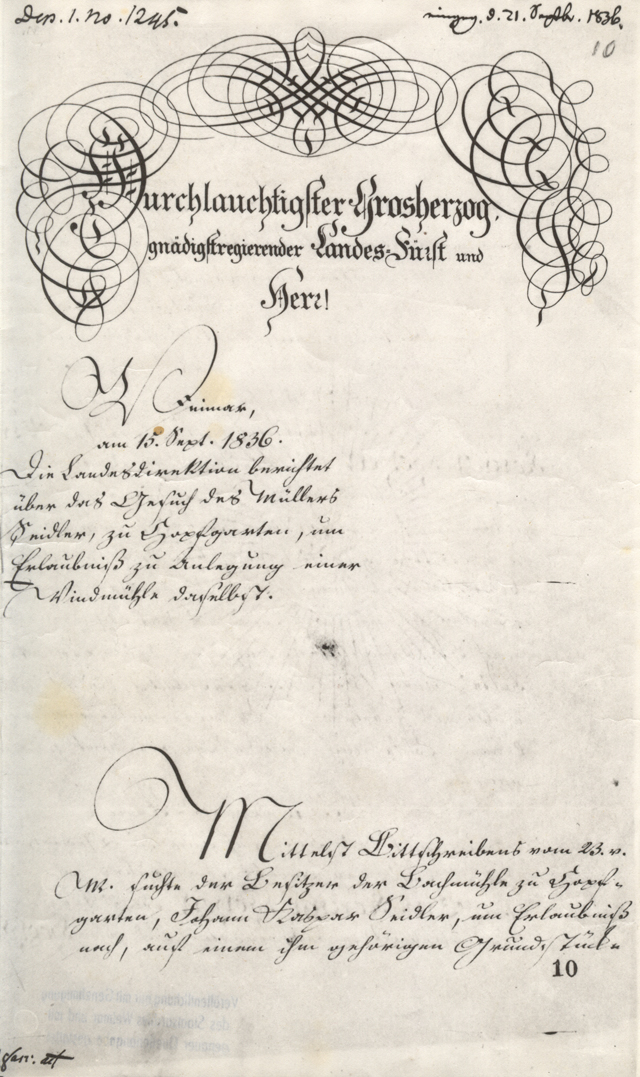 Dep. 1. No. 1245.
eingeg. d. 21. Septbr. 1836.
10
Durchlauchtigster Grosherzog,
gnädigstregierender Landes-Fürst und
Herr!
Weimar,
am 15. Sept. 1836.
Die Landesdirektion berichtet
über das Gesuch des Müllers
Seidler, zu Hopfgarten, um
Erlaubniß zu Anlegung einer
Windmühle daselbst.
Mittelst Bittschreibens vom 23. v.
M. suchte der Besitzer der Bachmühle zu Hopf-
garten, Johann Kaspar Seidler, um Erlaubniß
nach, auf einem ihm gehörigen Grundstücke
10